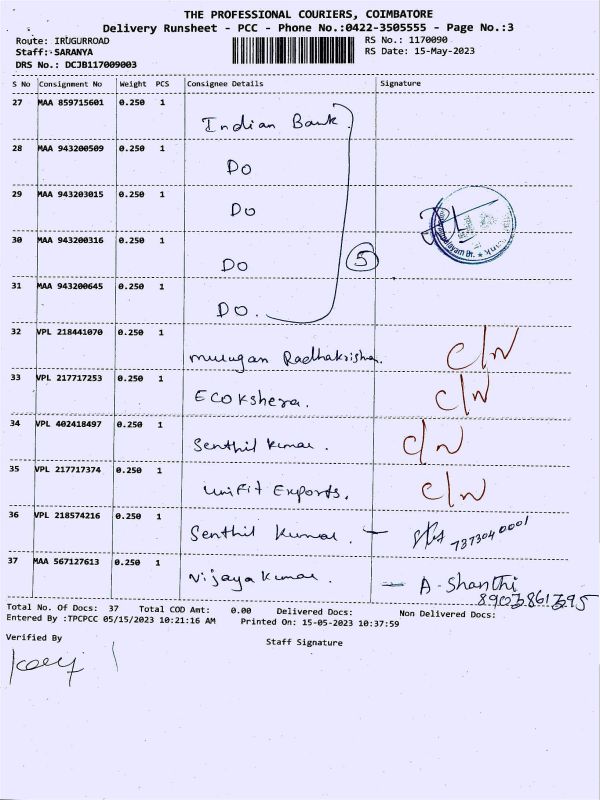 THE PROFESSIONAL COURIERS, COIMBATORE
Delivery Runsheet - PCC - Phone No.:0422-3505555 - Page No.:3
Route: IRUGURROAD RS No.: 1170090
Staff: SARANYA RS Date: 15-May-2023
DRS No.: DCJB117009003
S No Consignment No Weight PCS Consignee Details Signature
27 MAA 859715601 0.250 1
Indian Bank
28 MAA 943200509 0.250 1
Do
29 MAA 943203015 0.250 1
Do
30 MAA 943200316 0.250 1
Do 5
31 MAA 943200645 0.250 1
Do.
32 VPL 218441070 0.250 1
Murugan Radhakrisha. C/N
33 VPL 217717253 0.250 1
ECOKshera. C/N
34 VPL 402418497 0.250 1
Senthil Kumar. C/N
35 VPL 217717374 0.250 1
UniFit Exports. C/N
36 VPL 218574216 0.250 1
Senthil Kumar. 7373040001
37 MAA 567127613 0.250 1
Vijayakumar. A-Shanthi
Total No. Of Docs: 37 Total COD Amt: 0.00 Delivered Docs: Non Delivered Docs:
Entered By :TPCPCC 05/15/2023 10:21:16 AM Printed On: 15-05-2023 10:37:59
Verified By Staff Signature